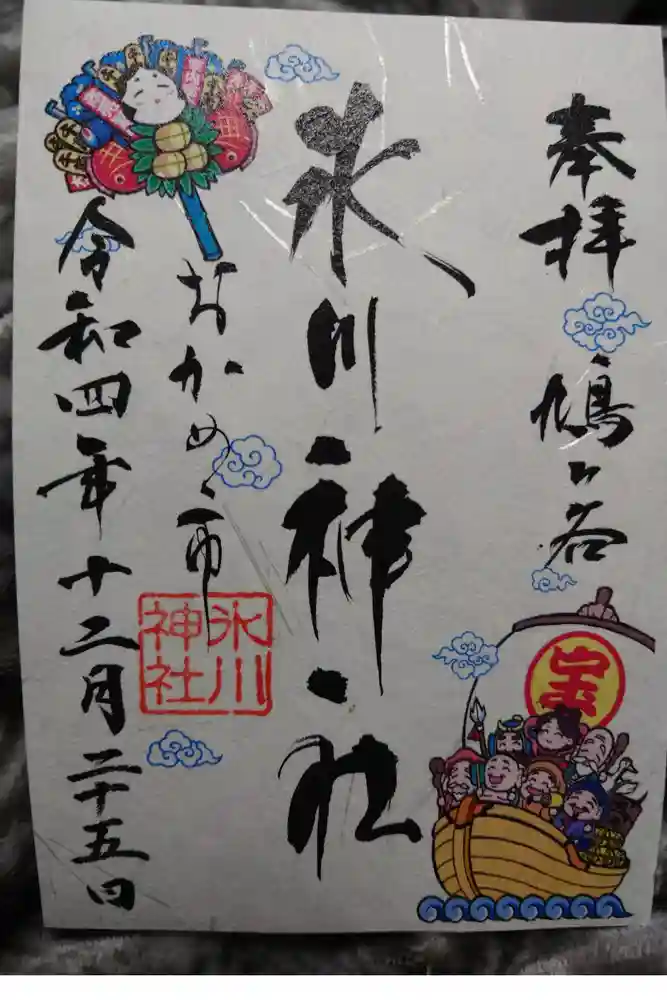 奉拝
鳩ヶ谷
氷川神社
おかめ市
氷川
神社
令和四年十二月二十五日
宝